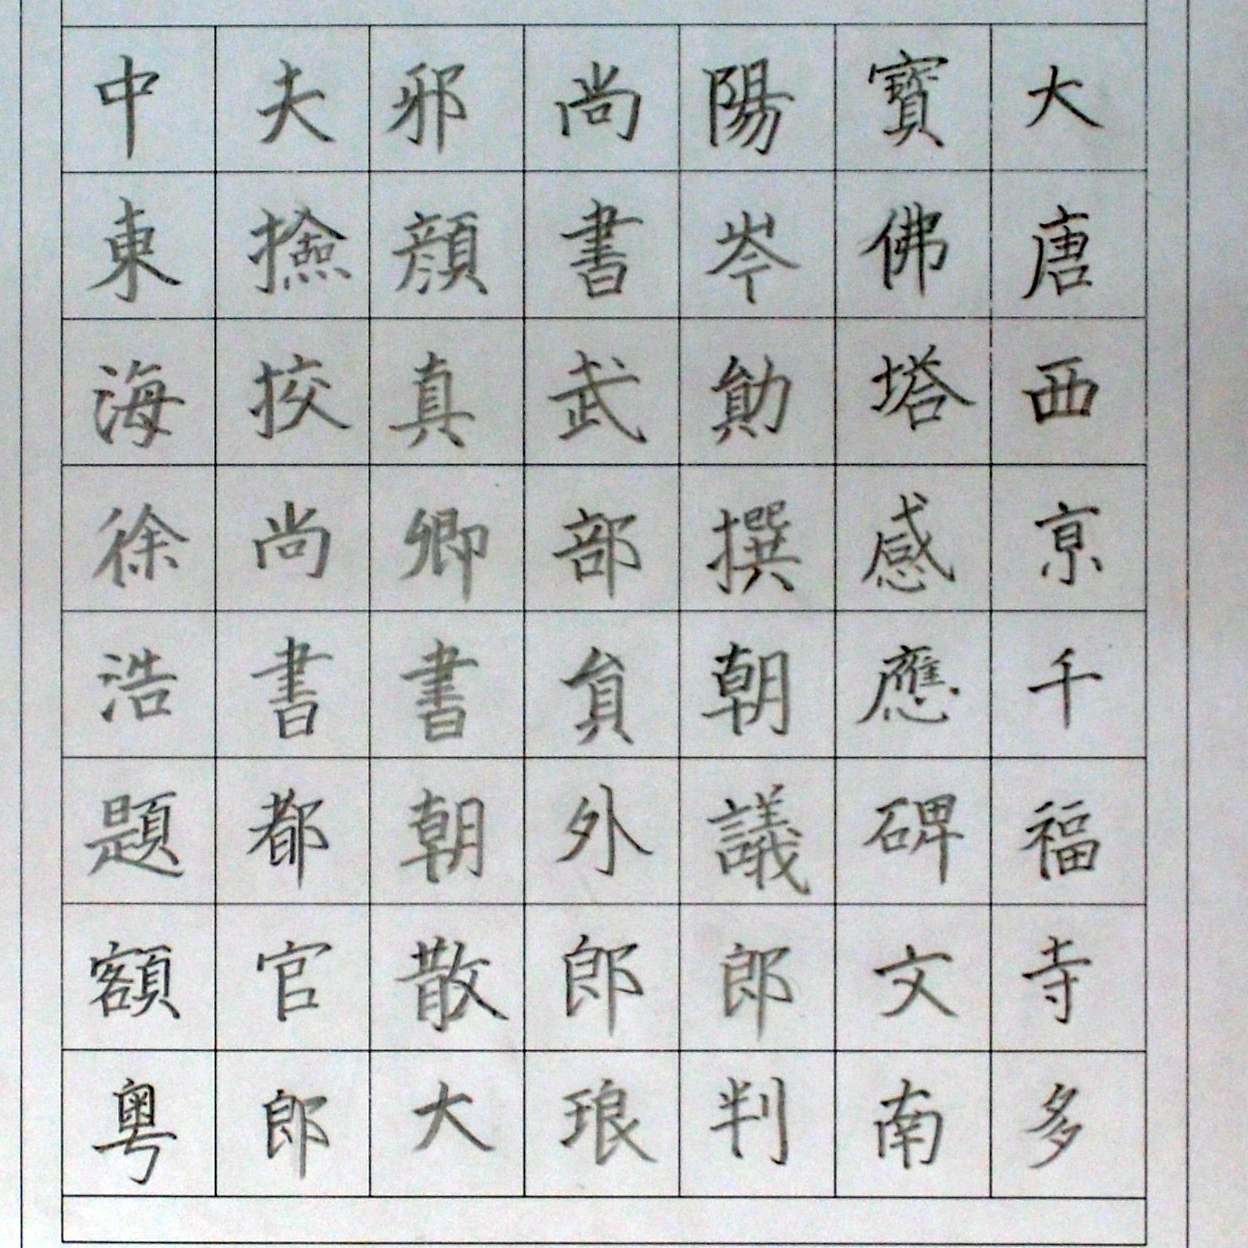 大唐西亰千福寺多
寳佛塔感應碑文南
陽岑勛撰朝議郎判
尚書武部員外郎琅
邪顔真卿書朝散大
夫撿挍尚書都官郎
中東海徐浩題額粵